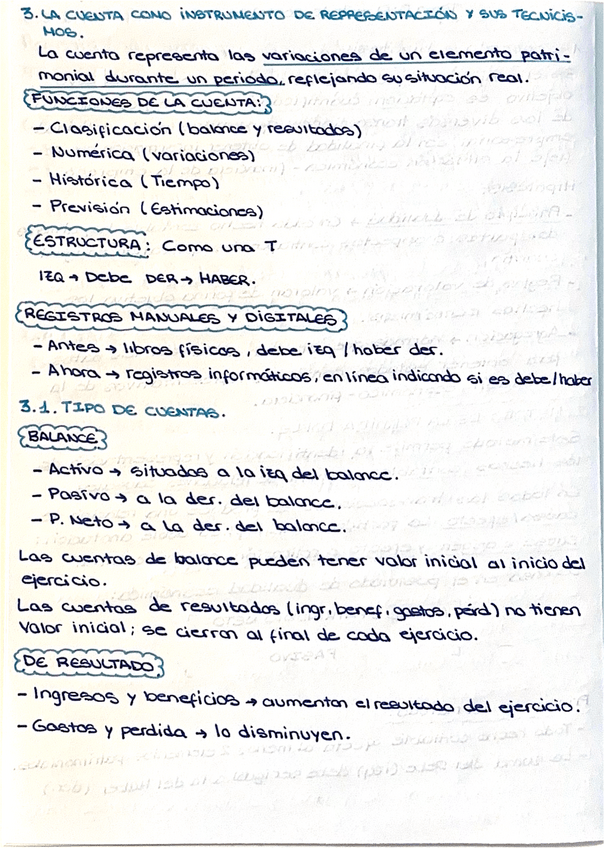 3. LA CUENTA COMO INSTRUMENTO DE REPRESENTACIÓN Y SUS TECNICIS-
MOS.
La cuenta representa las variaciones de un elemento patri-
monial durante un periodo, reflejando su situación real.
FUNCIONES DE LA CUENTA:
- Clasificación (balance y resultados)
- Numérica (variaciones)
- Histórica (Tiempo)
- Previsión (Estimaciones)
ESTRUCTURA: Como una T
IZQ → Debe DER → HABER.
REGISTROS MANUALES Y DIGITALES
- Antes → libros físicos, debe izq / haber der.
- Ahora → registros informáticos, en línea indicando si es debe/haber
3.1. TIPO DE CUENTAS.
BALANCE
- Activo → situados a la izq del balance.
- Pasivo → a la der. del balance.
- P. Neto → a la der. del balance.
Las cuentas de balance pueden tener valor inicial al inicio del
ejercicio.
Las cuentas de resultados (ingr, benef, gastos, pérd) no tienen
valor inicial; se cierran al final de cada ejercicio.
DE RESULTADO
- Ingresos y beneficios → aumentan el resultado del ejercicio.
- Gastos y perdida → lo disminuyen.